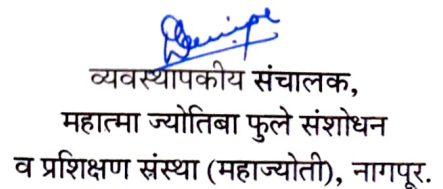 व्यवस्थापकीय संचालक,
महात्मा ज्योतिबा फुले संशोधन
व प्रशिक्षण संस्था (महाज्योती), नागपूर.